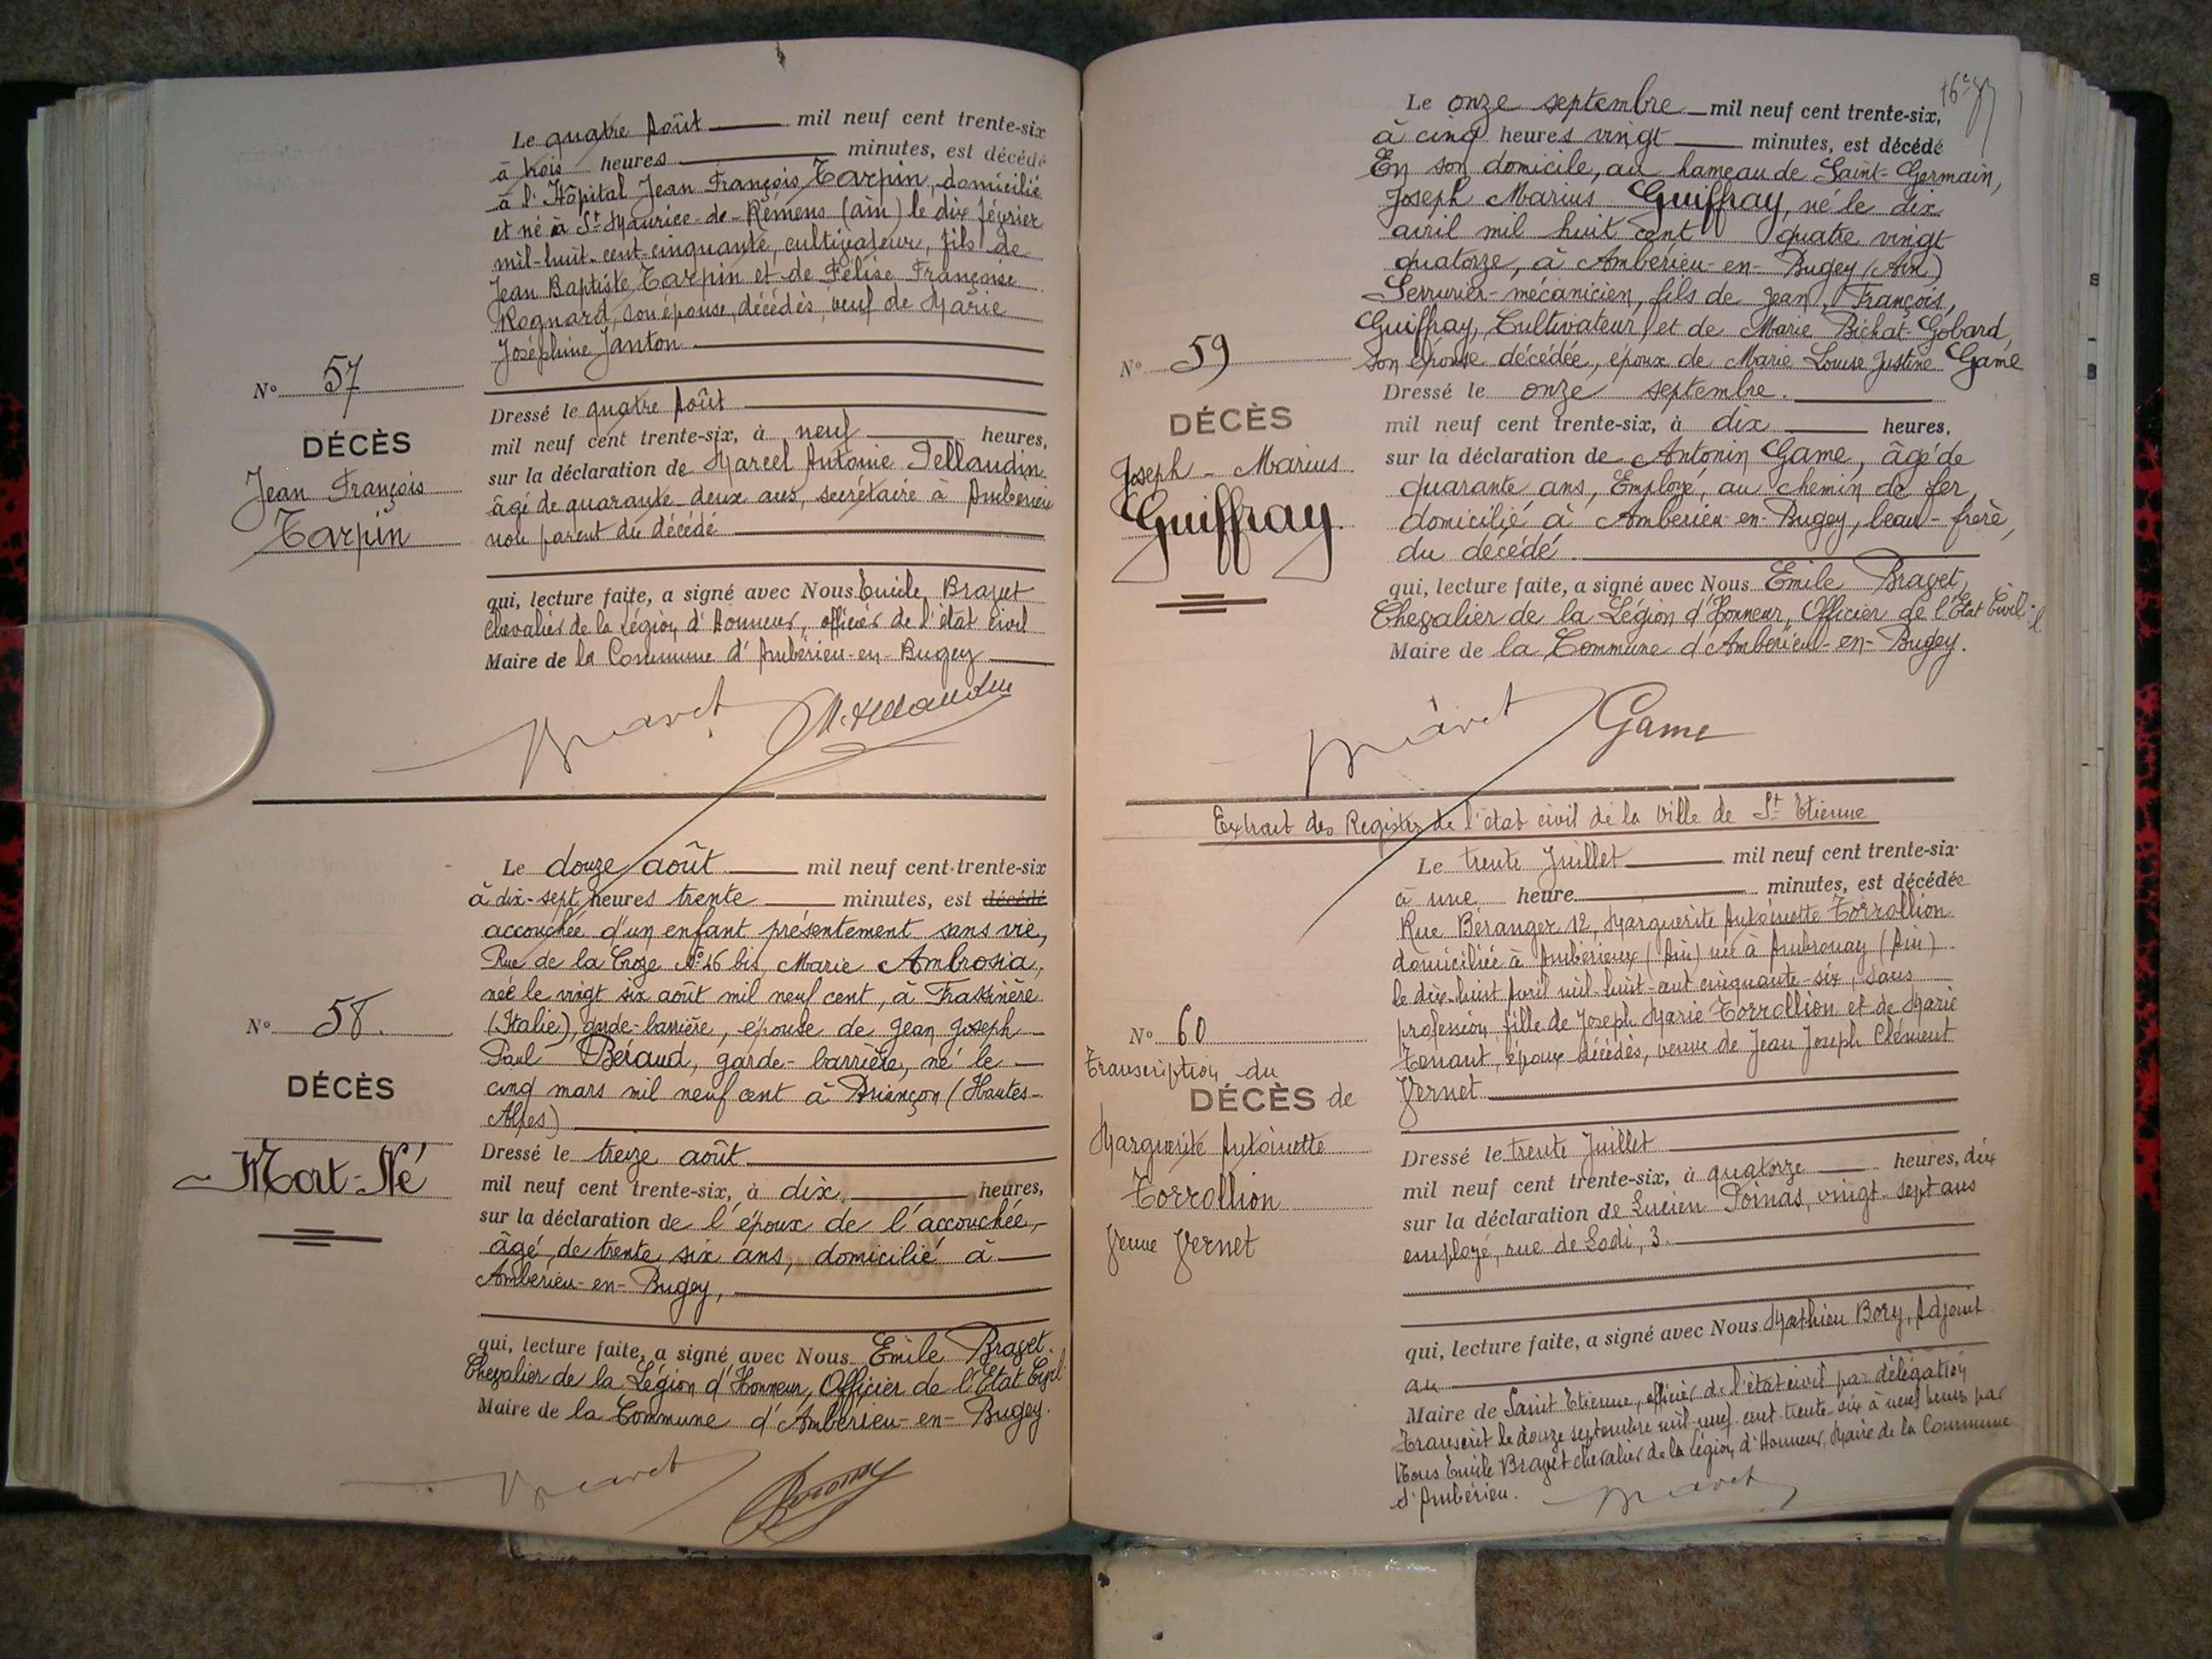 Le quatre Août mil neuf cent trente-six
à trois heures minutes, est décédé
à l'Hôpital Jean François Tarpin, domicilié
et né à St Maurice-de-Rémens (ain) le dix février
mil-huit-cent-cinquante, cultivateur, fils de
Jean Baptiste Tarpin et de Félise Françoise
Rognard, son épouse, décédés, veuf de Marie
Joséphine Janton
N° 57
DÉCÈS
Jean François
Tarpin
Dressé le quatre Août
mil neuf cent trente-six, à neuf heures,
sur la déclaration de Marcel Antonie Pellaudin
âgé de quarante-deux ans, secrétaire à Ambérieu
non parent du décédé
qui, lecture faite, a signé avec Nous Emile Bravet
Chevalier de la Légion d'Honneur, officier de l'état civil
Maire de la Commune d'Ambérieu-en-Bugey
Bravet
Le douze août mil neuf cent trente-six
à dix-sept heures trente minutes, est décédé
accouchée d'un enfant présentement sans vie,
Rue de la Croze N° 46 bis, Marie Ambrosia,
née le vingt six août mil neuf cent, à Frassinère
(Italie), garde-barrière, épouse de Jean Joseph
Paul Béraud, garde-barrière, né le
cinq mars mil neuf cent à Briançon (Hautes-
Alpes)
N° 58.
DÉCÈS
Mort-Né
Dressé le treize août
mil neuf cent trente-six, à dix heures,
sur la déclaration de l'époux de l'accouchée,
âgé de trente six ans, domicilié à
Ambérieu-en-Bugey,
qui, lecture faite, a signé avec Nous Emile Bravet.
Chevalier de la Légion d'Honneur, Officier de l'Etat Civil
Maire de la Commune d'Ambérieu-en-Bugey.
Bravet
16e
Le onze septembre mil neuf cent trente-six,
à cinq heures vingt minutes, est décédé
En son domicile, au hameau de Saint-Germain,
Joseph Marius Guiffray, né le dix
avril mil huit cent quatre vingt
quatorze, à Ambérieu-en-Bugey (Ain)
Serrurier-mécanicien, fils de Jean, François,
Guiffray, Cultivateur, et de Marie Bichat-Gobard,
son épouse décédée, époux de Marie Louise Justine Game
N° 59
DÉCÈS
Joseph-Marius
Guiffray.
Dressé le onze septembre.
mil neuf cent trente-six, à dix heures,
sur la déclaration de Antonin Game, âgé de
quarante ans, Employé, au chemin de fer,
domicilié à Ambérieu-en-Bugey, beau-frère,
du décédé
qui, lecture faite, a signé avec Nous Emile Bravet,
Chevalier de la Légion d'Honneur, Officier de l'Etat Civil
Maire de la Commune d'Ambérieu-en-Bugey.
Bravet Game
Extrait des Registres de l'état civil de la Ville de St Etienne
Le trente Juillet mil neuf cent trente-six
à une heure minutes, est décédée
Rue Béranger 12, Marguerite Antoinette Torrollion
domiciliée à Ambérieux (Ain) née à Ambronay (Ain)
le dix-huit Avril mil-huit-cent cinquante-six, sans
profession, fille de Joseph Marie Torrollion et de Marie
Tenant, époux décédés, veuve de Jean Joseph Clément
Vernet
N° 60
Transcription du
DÉCÈS de
Marguerite Antoinette
Torrollion
Veuve Vernet
Dressé le trente Juillet
mil neuf cent trente-six, à quatorze heures, dix
sur la déclaration de Lucien Poinas, vingt-sept ans
employé, rue de Lodi, 3.
qui, lecture faite, a signé avec Nous Mathieu Bory, Adjoint
au
Maire de Saint Etienne, officier de l'état civil par délégation
Transcrit le douze septembre mil-neuf-cent-trente-six à neuf heures par
Nous Emile Bravet chevalier de la Légion d'Honneur, Maire de la Commune
d'Ambérieu.
Bravet